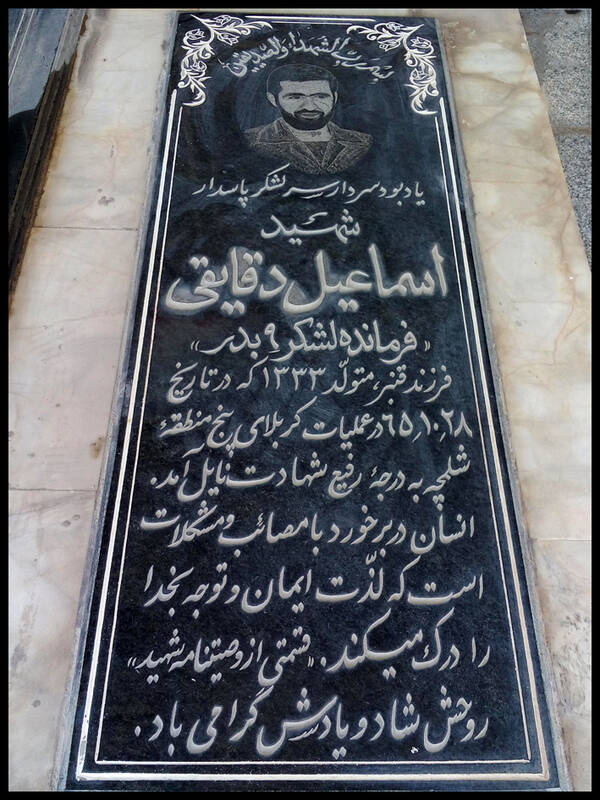 بسم رب الشهداء والصدیقین
یادبود سردار سرلشکر پاسدار
شهید
اسماعیل دقایقی
«فرمانده لشکر ۹ بدر»
فرزند قنبر، متولّد ۱۳۳۳ که در تاریخ
۶۵٫۱۰٫۲۸ در عملیات کربلای پنج منطقهٔ
شلمچه به درجهٔ رفیع شهادت نایل آمد.
انسان در برخورد با مصائب و مشکلات
است که لذّت ایمان و توجه بخدا
را درک میکند. «قسمتی از وصیتنامه شهید»
روحش شاد و یادش گرامی باد.